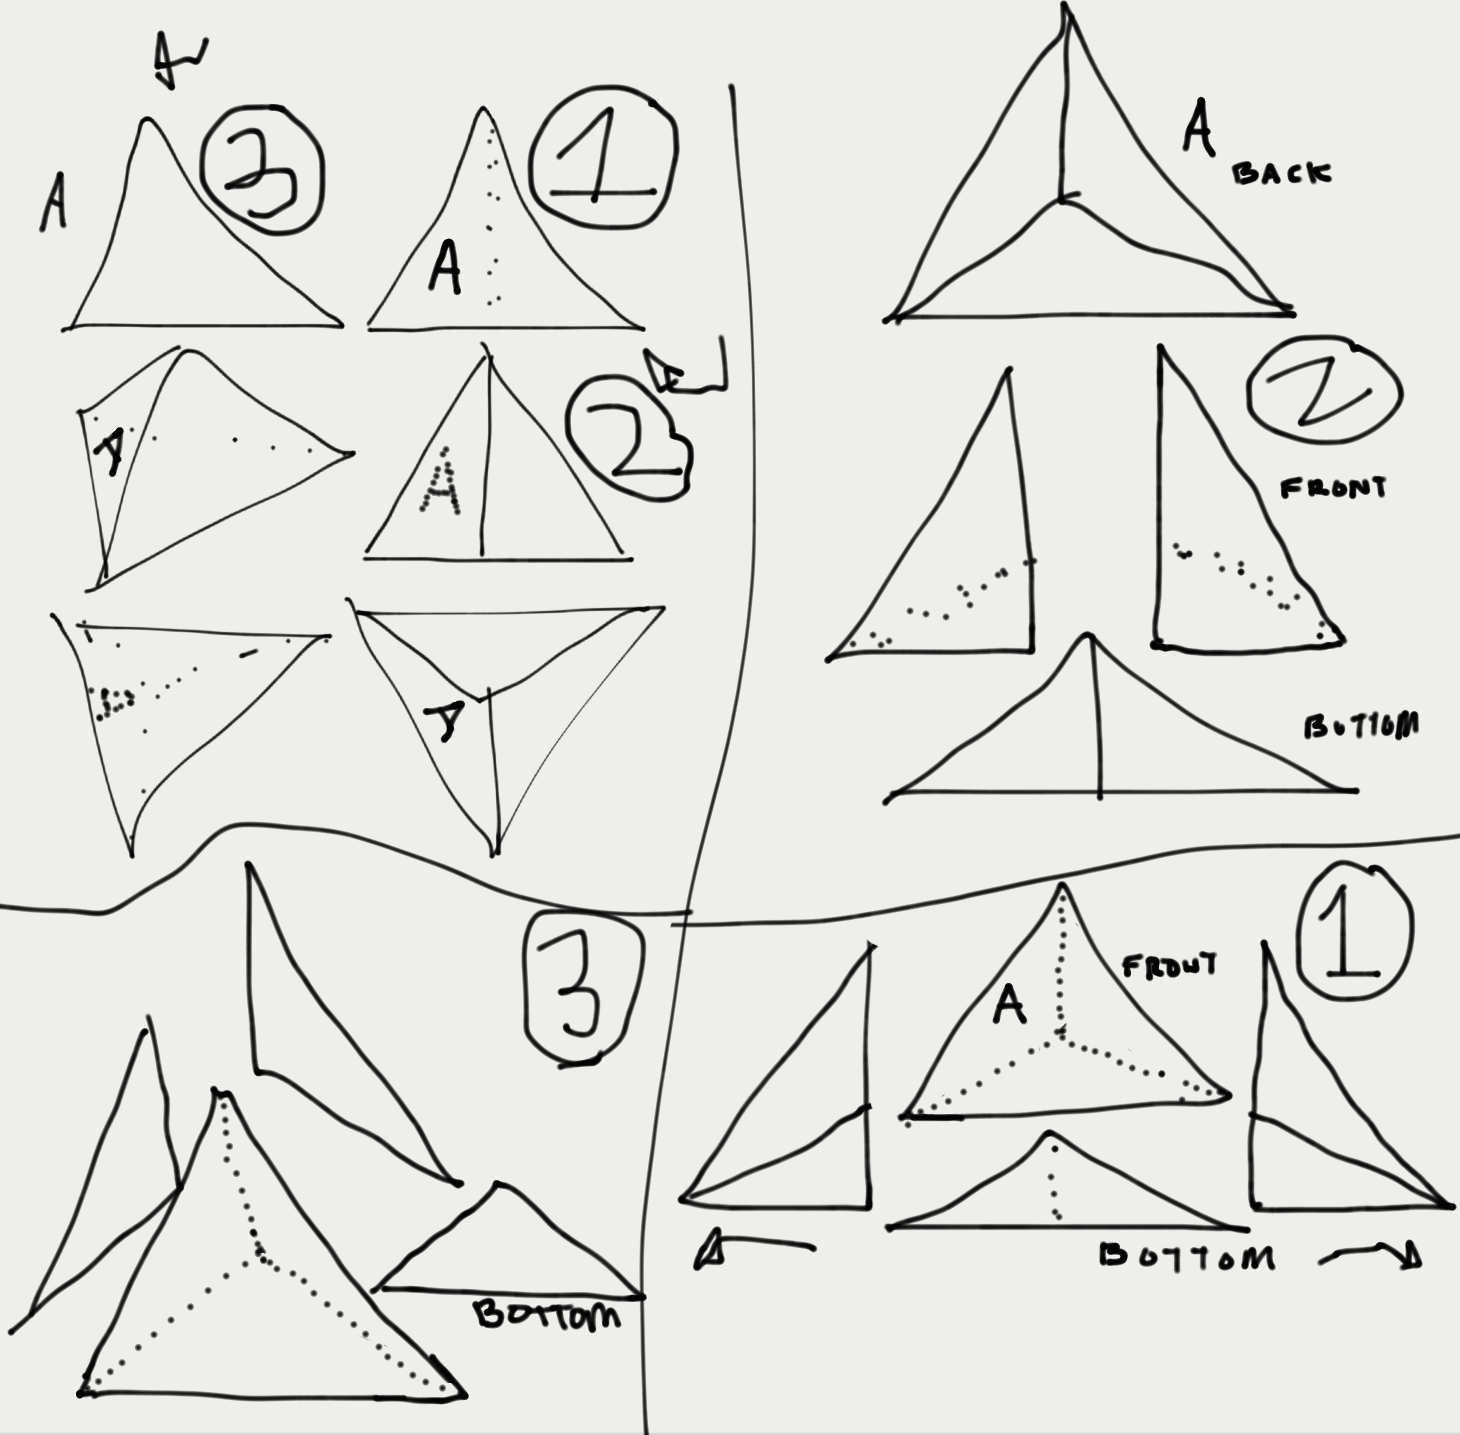 3
1
A
A
A
2
A
A
A
A
BACK
2
FRONT
BOTTOM
3
BOTTOM
1
FRONT
A
BOTTOM